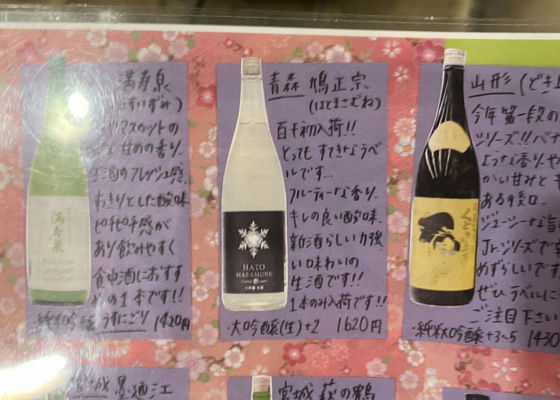 満寿泉
(ますいずみ)
マスカットの
甘めの香り.
生酒のフレッシュ感.
すっきりとした酸味.
ピチピチ感が
あり飲みやすく
食中酒におすす
めの1本です!!
純米吟醸 うすにごり 1420円
満寿泉
青森 鳩正宗
(はとまさむね)
百千初入荷!!
とっても すてきなラベ
ルです...
フルーティーな香り.
キレの良い酸味.
新酒らしい力強
い味わいの
生酒です!!
1本のみ入荷です!!
大吟醸(生)+2 1620円
HATO
MASAMUNE
山形 (どき
今年第一段の
シリーズ!!
ような香り
かい甘みとキ
ある
ジューシーな
Jr.シリーズで
めずらしいです
ぜひラベルに
ご注目下さい
純米大吟醸+3~5 1430
宮城 墨廼江
宮城 萩の鶴